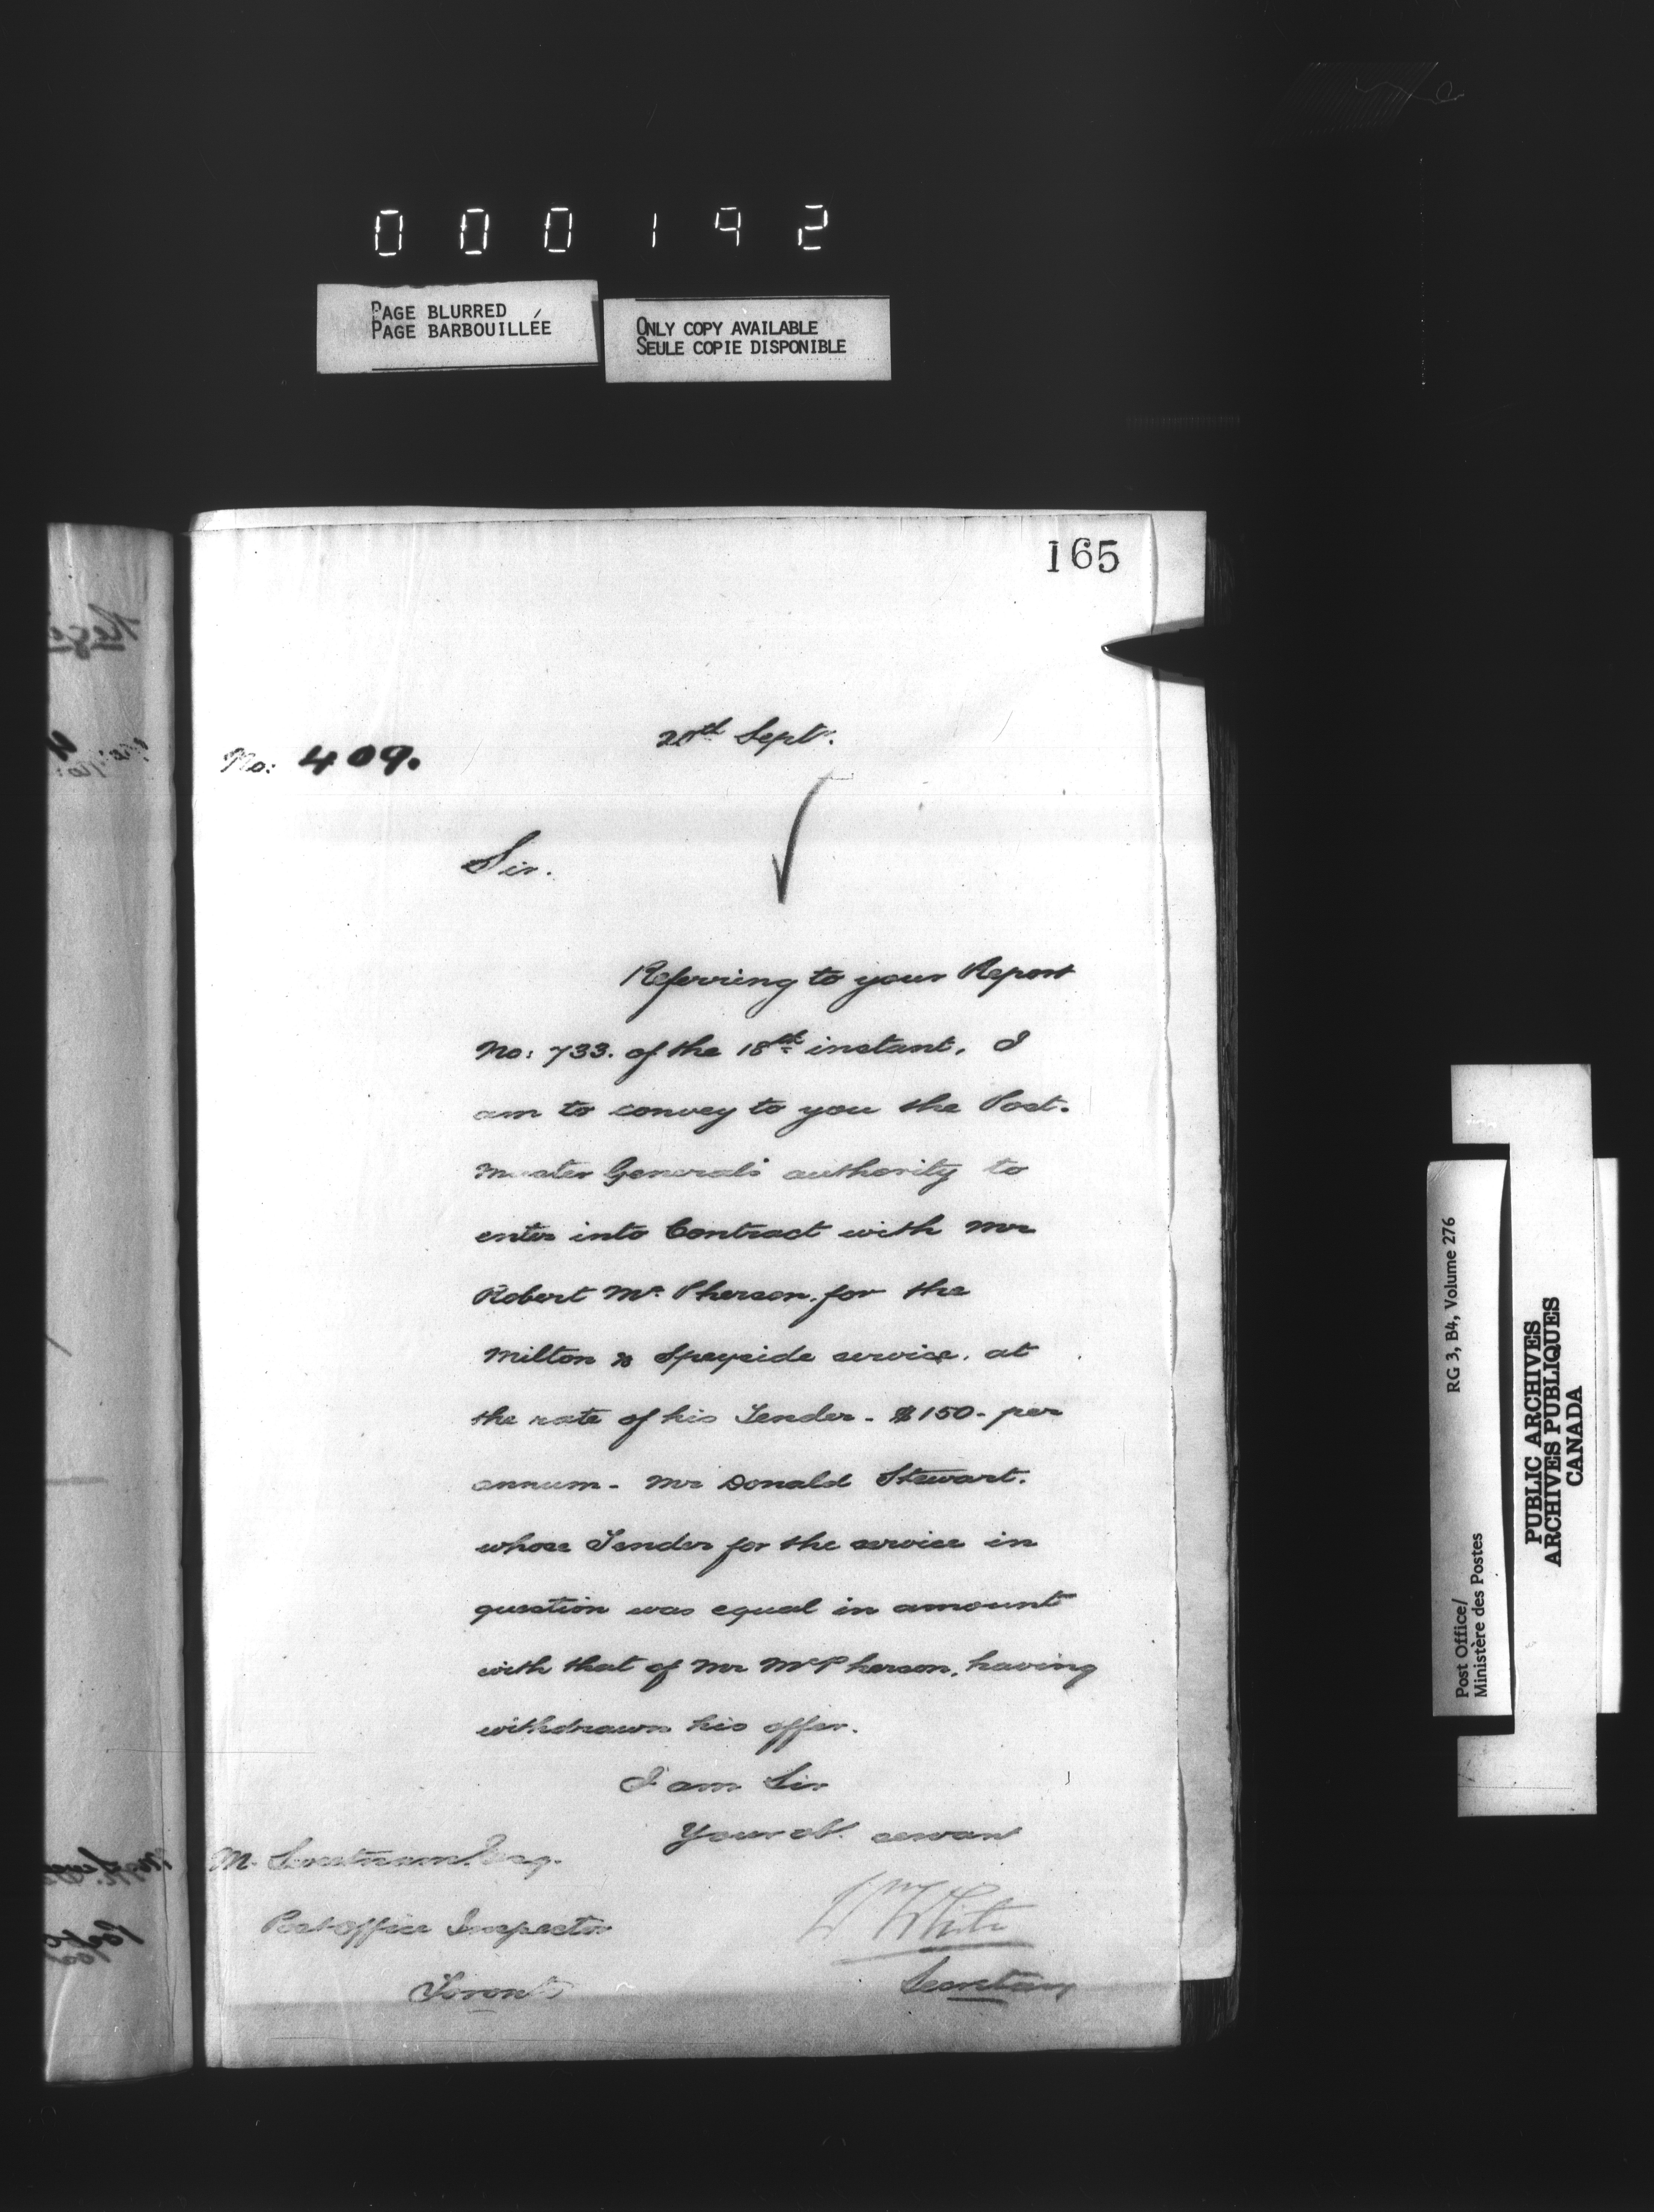 000192
PAGE BLURRED
PAGE BARBOUILLÉE
ONLY COPY AVAILABLE
SEULE COPIE DISPONIBLE
165
20th Sept.
No: 409.
Sir.
Referring to your Report
No: 733. of the 18th instant, I
am to convey to you the Post-
Master General's authority to
enter into Contract with Mr
Robert Mc Pherson, for the
Milton & Speyside service, at
the rate of his Tender - $150 - per
annum - Mr Donald Stewart.
whose Tender for the service in
question was equal in amount
with that of Mr McPherson, having
withdrawn his offer.
I am Sir
Your ob. servant
M. Sweetnam Esq.
Post Office Inspector
Toronto
Wm White
Secretary
Post Office/
Ministère des Postes
RG 3, B4, Volume 276
PUBLIC ARCHIVES
ARCHIVES PUBLIQUES
CANADA